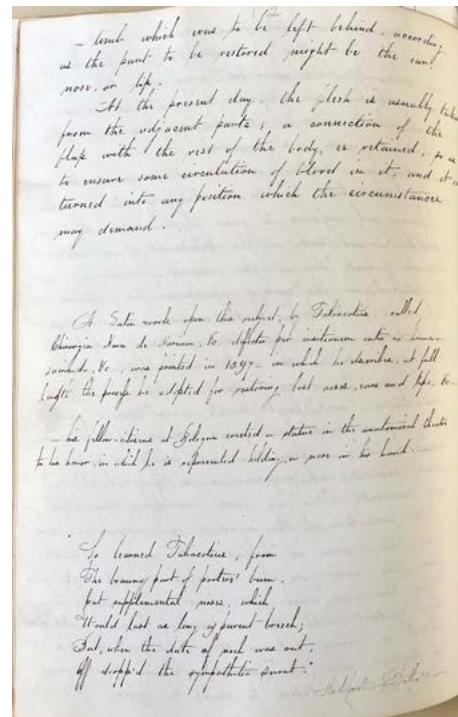 – limb which was to be left behind, according
as the part to be restored might be the ear,
nose, or lip.
At the present day, the flesh is usually taken
from the adjacent parts; a connection of the
flap with the rest of the body, is retained, so as
to ensure some circulation of blood in it, and it is
turned into any position which the circumstances
may demand.
A Latin work upon this subject, by Taliacotius, called,
Chirurgia Nova de Narium, &c. defectu per insitionem cutis ex humero
&c., was printed in 1597 – in which he describes, at full
length the process he adopted for restoring lost noses, ears and lips, &c –
– his fellow-citizens at Bologna erected a statue in the anatomical theatre
to his honor, in which he is represented holding a nose in his hand.
"So learned Taliacotius, from
The brawny part of porters' bum,
Cut supplemental noses, which,
Would last as long as parent breech;
But, when the date of nock was out,
Off dropp'd the sympathetic snout."